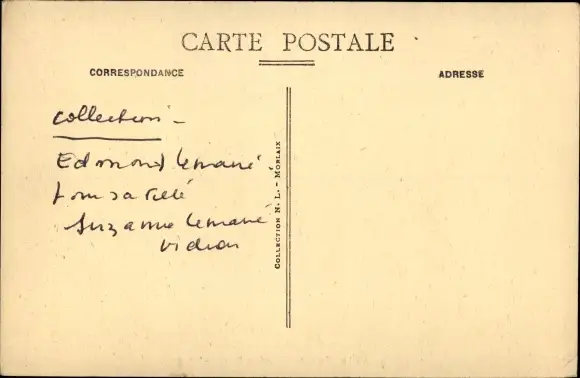 CARTE POSTALE
CORRESPONDANCE
ADRESSE
Collection -
Edmond Lemarié
Suzanne Lemarié
COLLECTION N. L. - MORLAIX